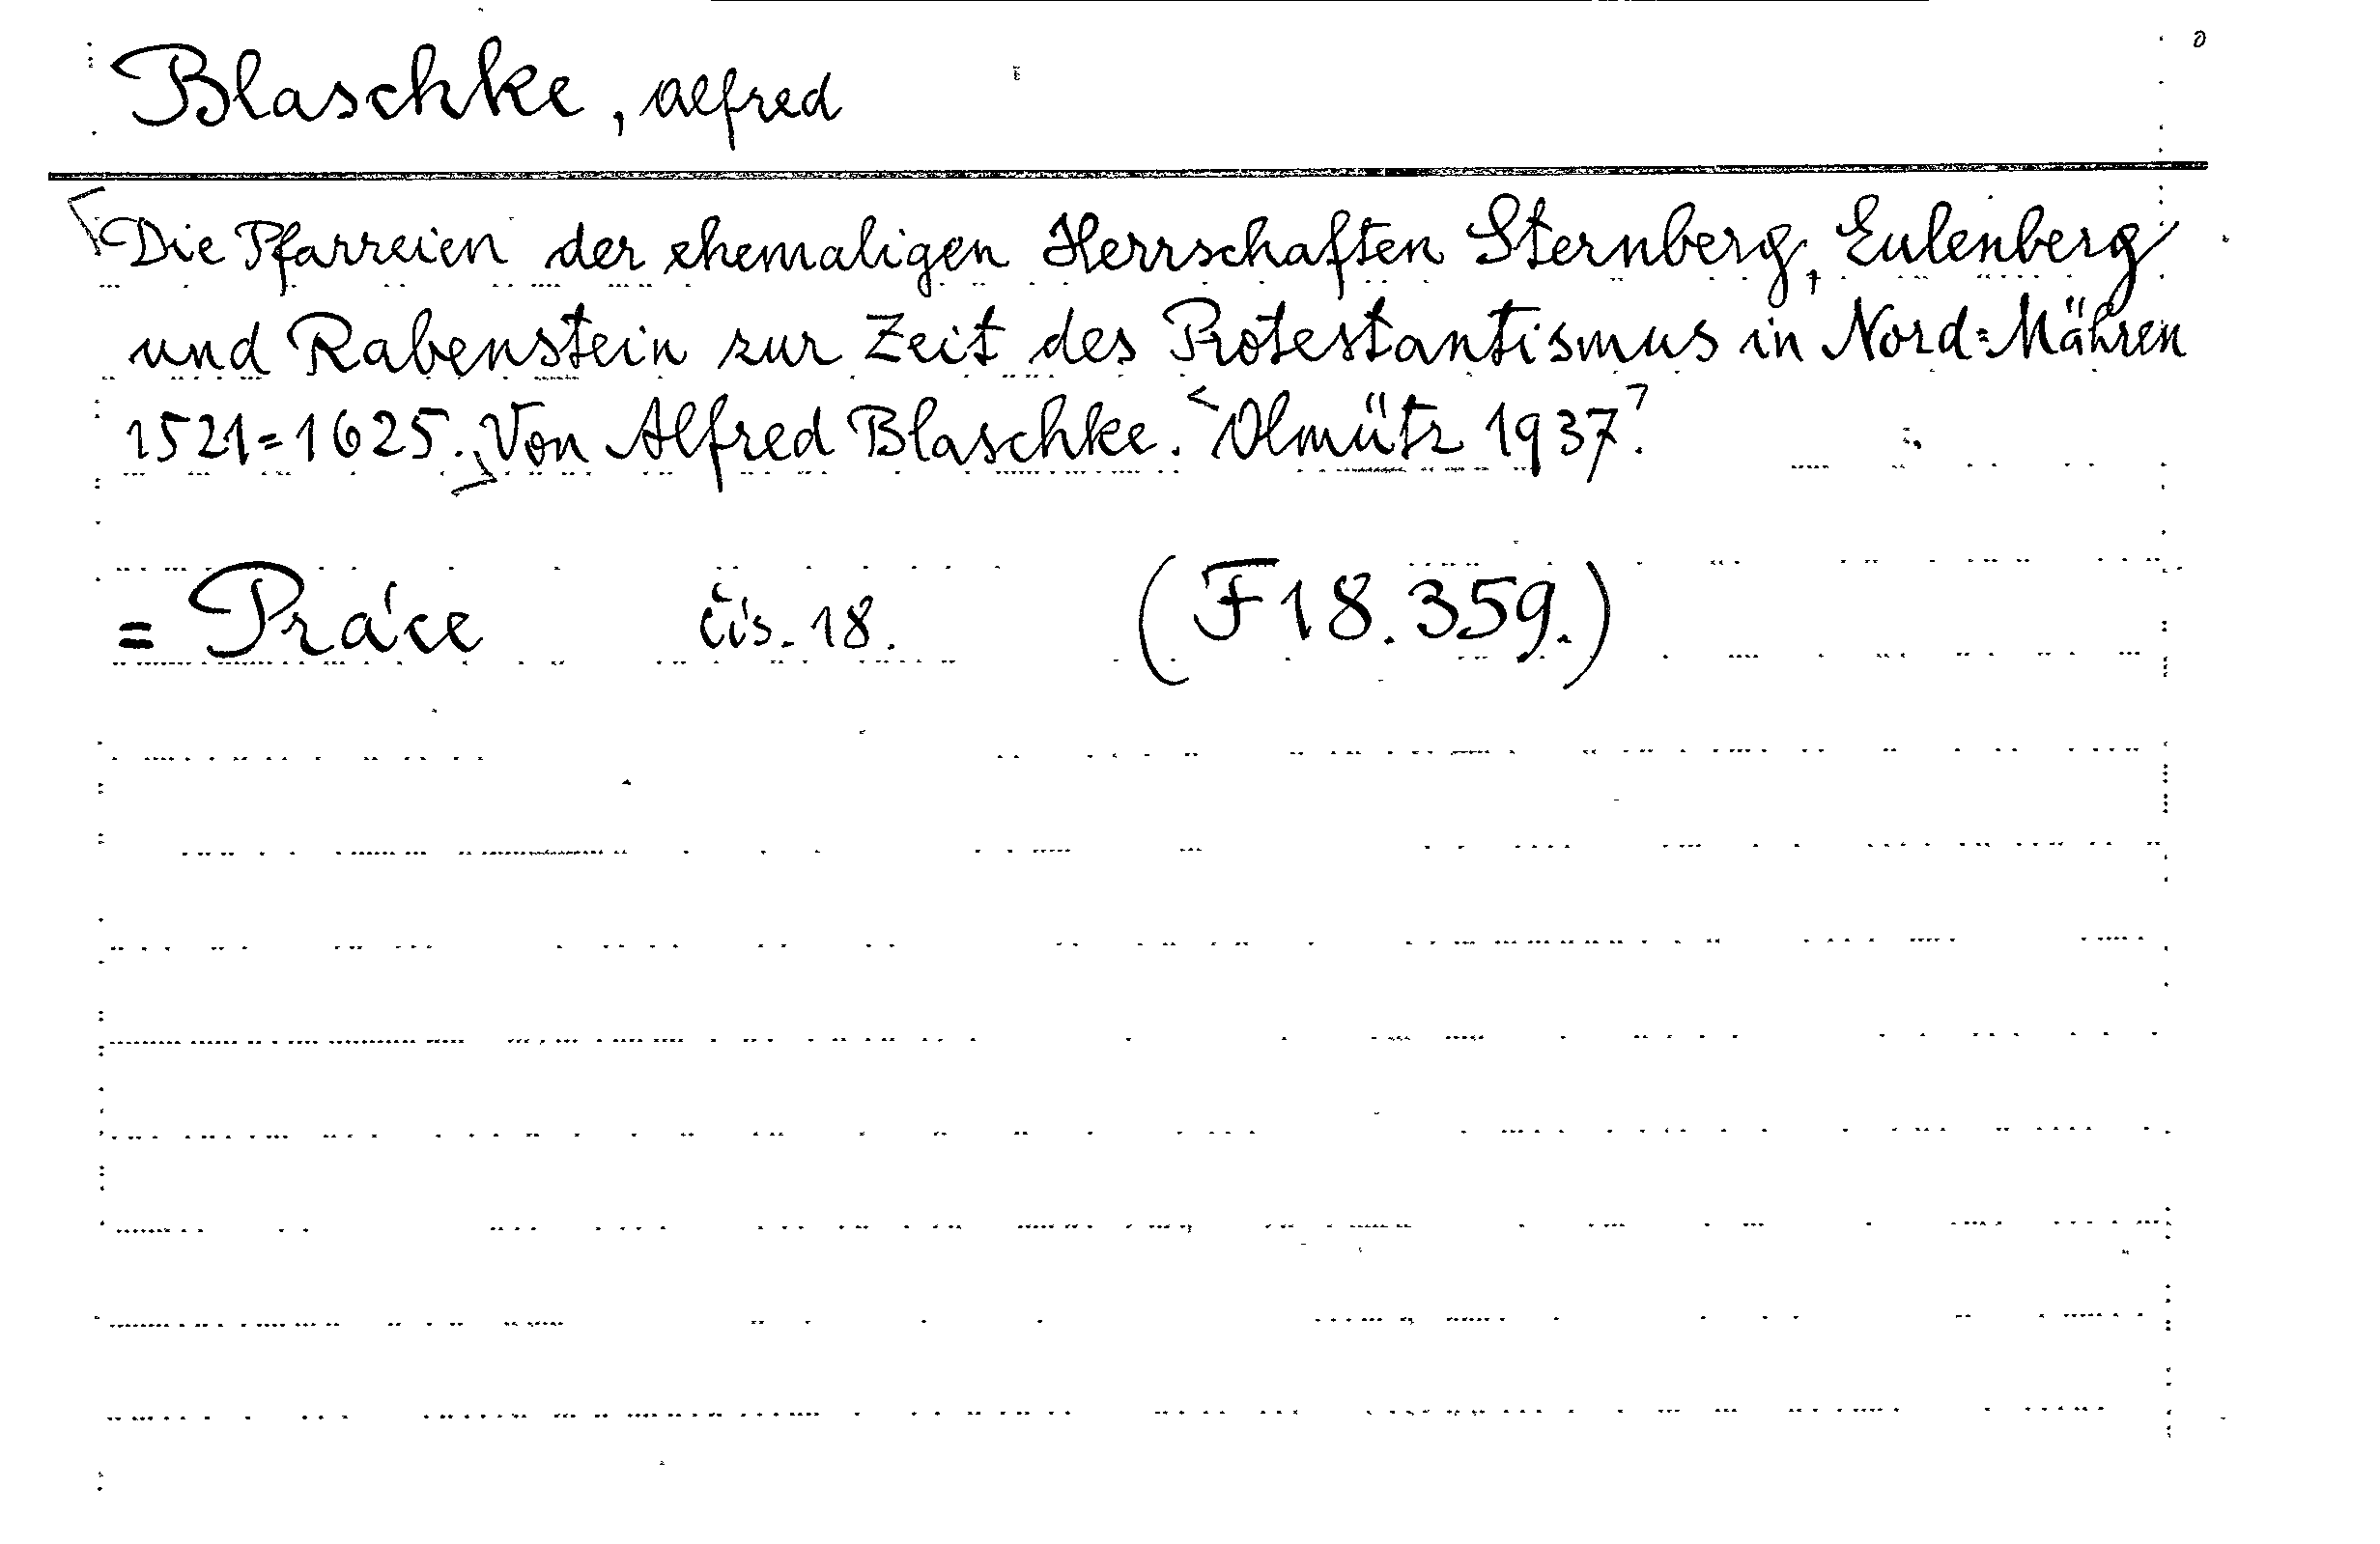 Blaschke, Alfred
Die Pfarreien der ehemaligen Herrschaften Sternberg, Eulenberg
und Rabenstein zur Zeit des Protestantismus in Nord=Mähren
1521=1625. Von Alfred Blaschke. Olmütz 1937.
= Práce čís. 18. (F 18.359.)